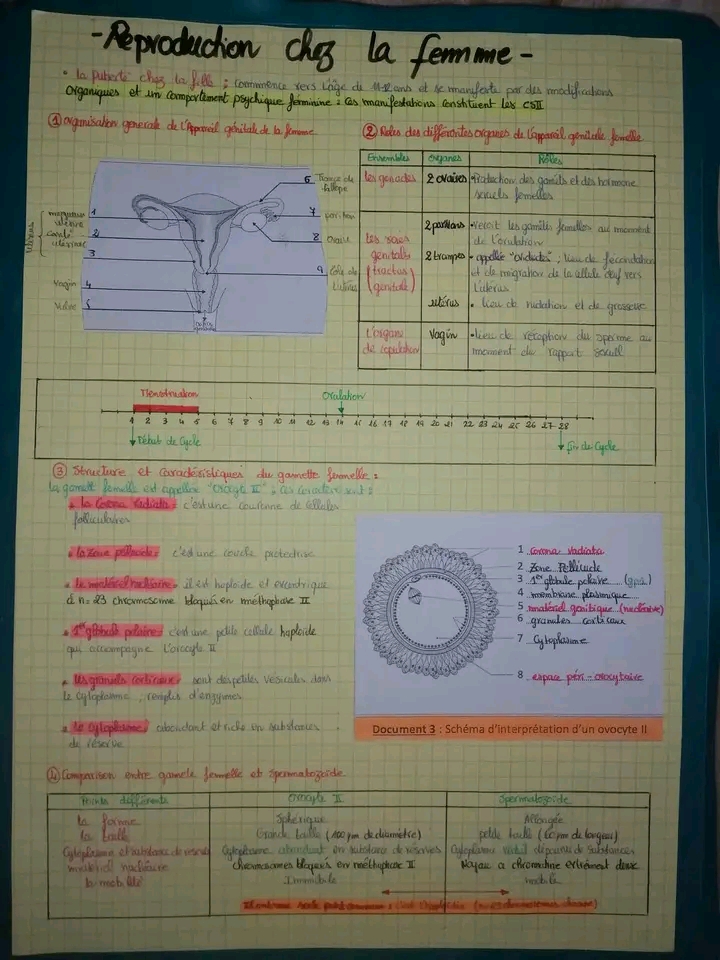 - Reproduction chez la femme -
• la Puberté chez la fille : commence vers l'âge de 11-12 ans et se manifeste par des modifications
Organiques et un comportement psychique féminine : ces manifestations constituent les CSII
① Organisation generale de l'Appareil génitale de la femme
② Roles des différentes organes de l'appareil génitale femelle
Ensembles organes Rôles
les gonades 2 ovaires • Production des gamets et des hormone
sexuels femelles
les voies
génitals
(tractus
génitale)
2 pavillons • reçoit les gamètes femelles au moment
de l'ovulation
2 trompes • appellée "oviductes" ; lieu de fécondation
et de migration de la cellule œuf vers
l'utérus
utérus • lieu de nidation et de grossesse
l'organe
de copulation
Vagin • lieu de réception du sperme au
moment du rapport sexuell
utérus
cavité
utérine
Vagin
Vulve
1
2
3
4
5
6 Trompe de
fallope
7 pavillon
8 Ovaire
9 Col de
l'utérus
Menstruation Ovulation
1 2 3 4 5 6 7 8 9 10 11 12 13 14 15 16 17 18 19 20 21 22 23 24 25 26 27 28
Début de Cycle fin de Cycle
③ Structure et Caractéristiques du gamette femelle :
la gamett femelle est appellée "Ovocyte II" ; ces caractère sont :
• la Corona radiata : c'est une couronne de cellules
folliculaires
• la zone pellucide : c'est une couche protectrice
• le matériel nucléaire : il est haploïde et excentrique
à n=23 chromosome bloqués en méthaphase II
• 1er globule polaire : c'est une petite cellule haploïde
qui accompagne l'ovocyte II
• les granuls corticaux : sont des petites vésicules dans
le cytoplasme, remplis d'enzymes
• le cytoplasme : abondant et riche en substances
de réserve
1 Corona radiata
2 Zone Pellucide
3 1er globule polaire (gp1)
4 membrane plasmique
5 matériel génitique (nucléaire)
6 granules corticaux
7 Cytoplasme
8 espace péri-ovocytaire
Document 3 : Schéma d'interprétation d'un ovocyte II
④ Comparaison entre gamete femelle et spermatozoïde
Points différents Ovocyte II Spermatozoïde
la forme Sphérique Allongée
la taille Grande taille (100 µm de diamètre) petite taille (60 µm de longeur)
Cytoplasme et substance de réserve Cytoplasme abondant en substance de réserves Cytoplasme réduit dépourvu de Substances
matériel nucléaire chromosomes bloqués en méthaphase II Noyau a chromatine extrément dense
la mobilité Immobile mobile